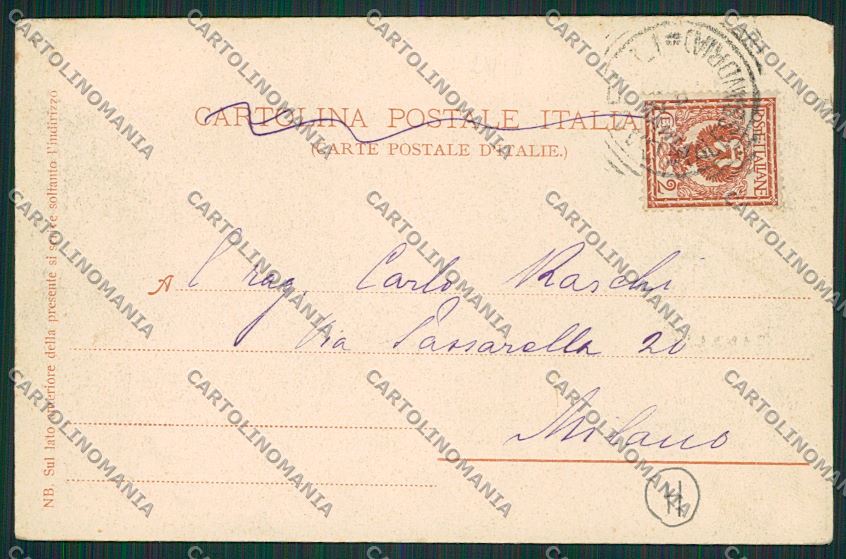 CARTOLINA POSTALE ITALIANA
(CARTE POSTALE D'ITALIE.)
POSTE ITALIANE
2
A l rag. Carlo Raschi
Via Passarella 20
Milano
NB. Sul lato anteriore della presente si scrive soltanto l'indirizzo
H
CARTOLINOMANIA